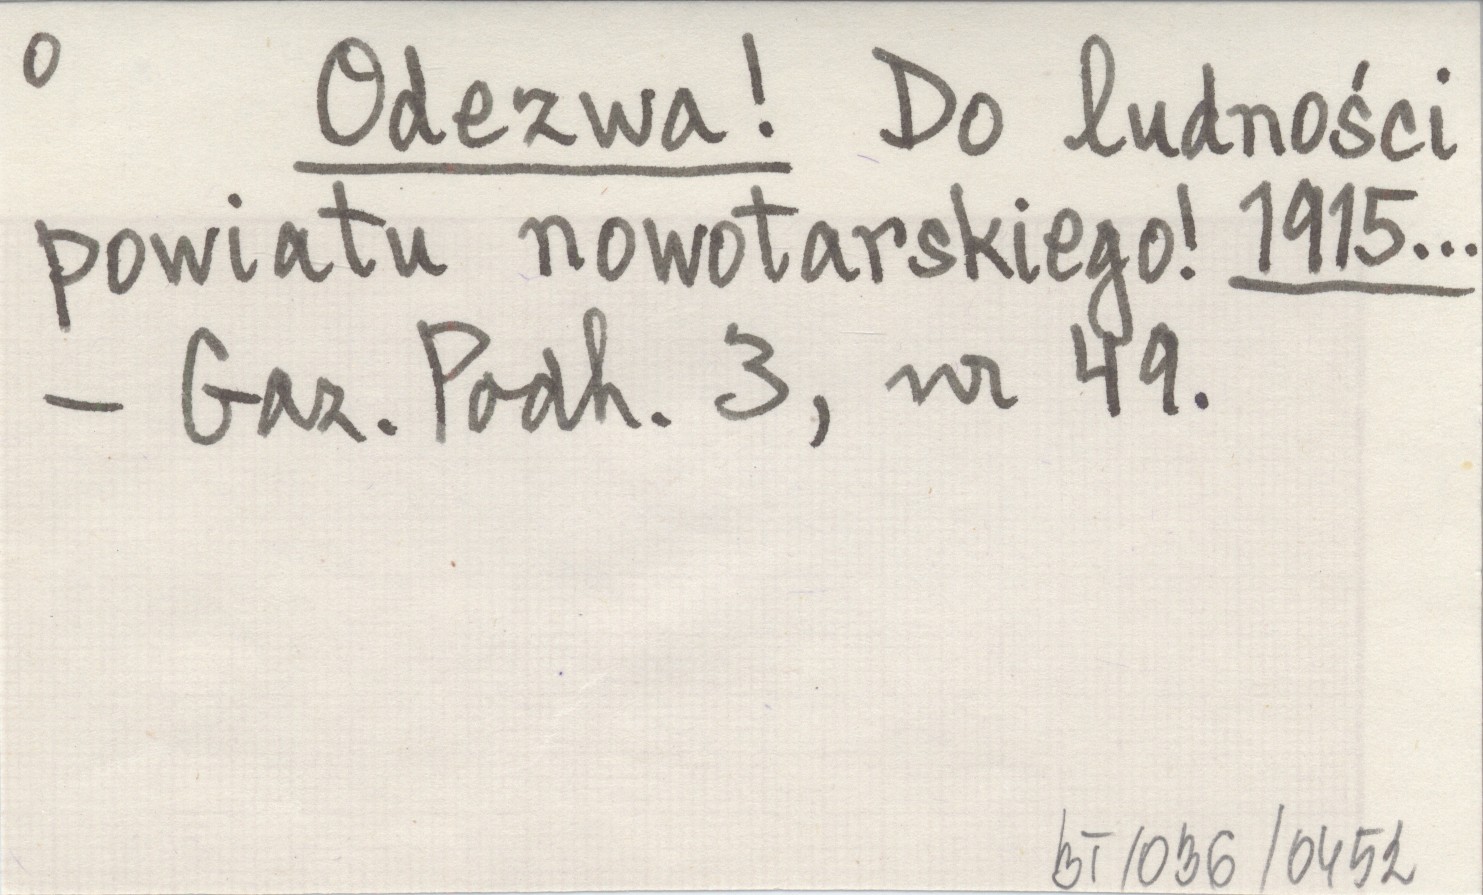 O Odezwa! Do ludności
powiatu nowotarskiego! 1915...
– Gaz. Podh. 3, nr 49.
BT/036/0452